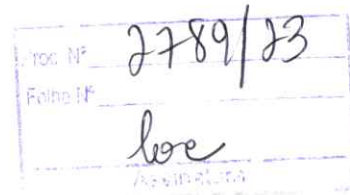 Proc Nº 2789/23
Folha Nº
Assinatura